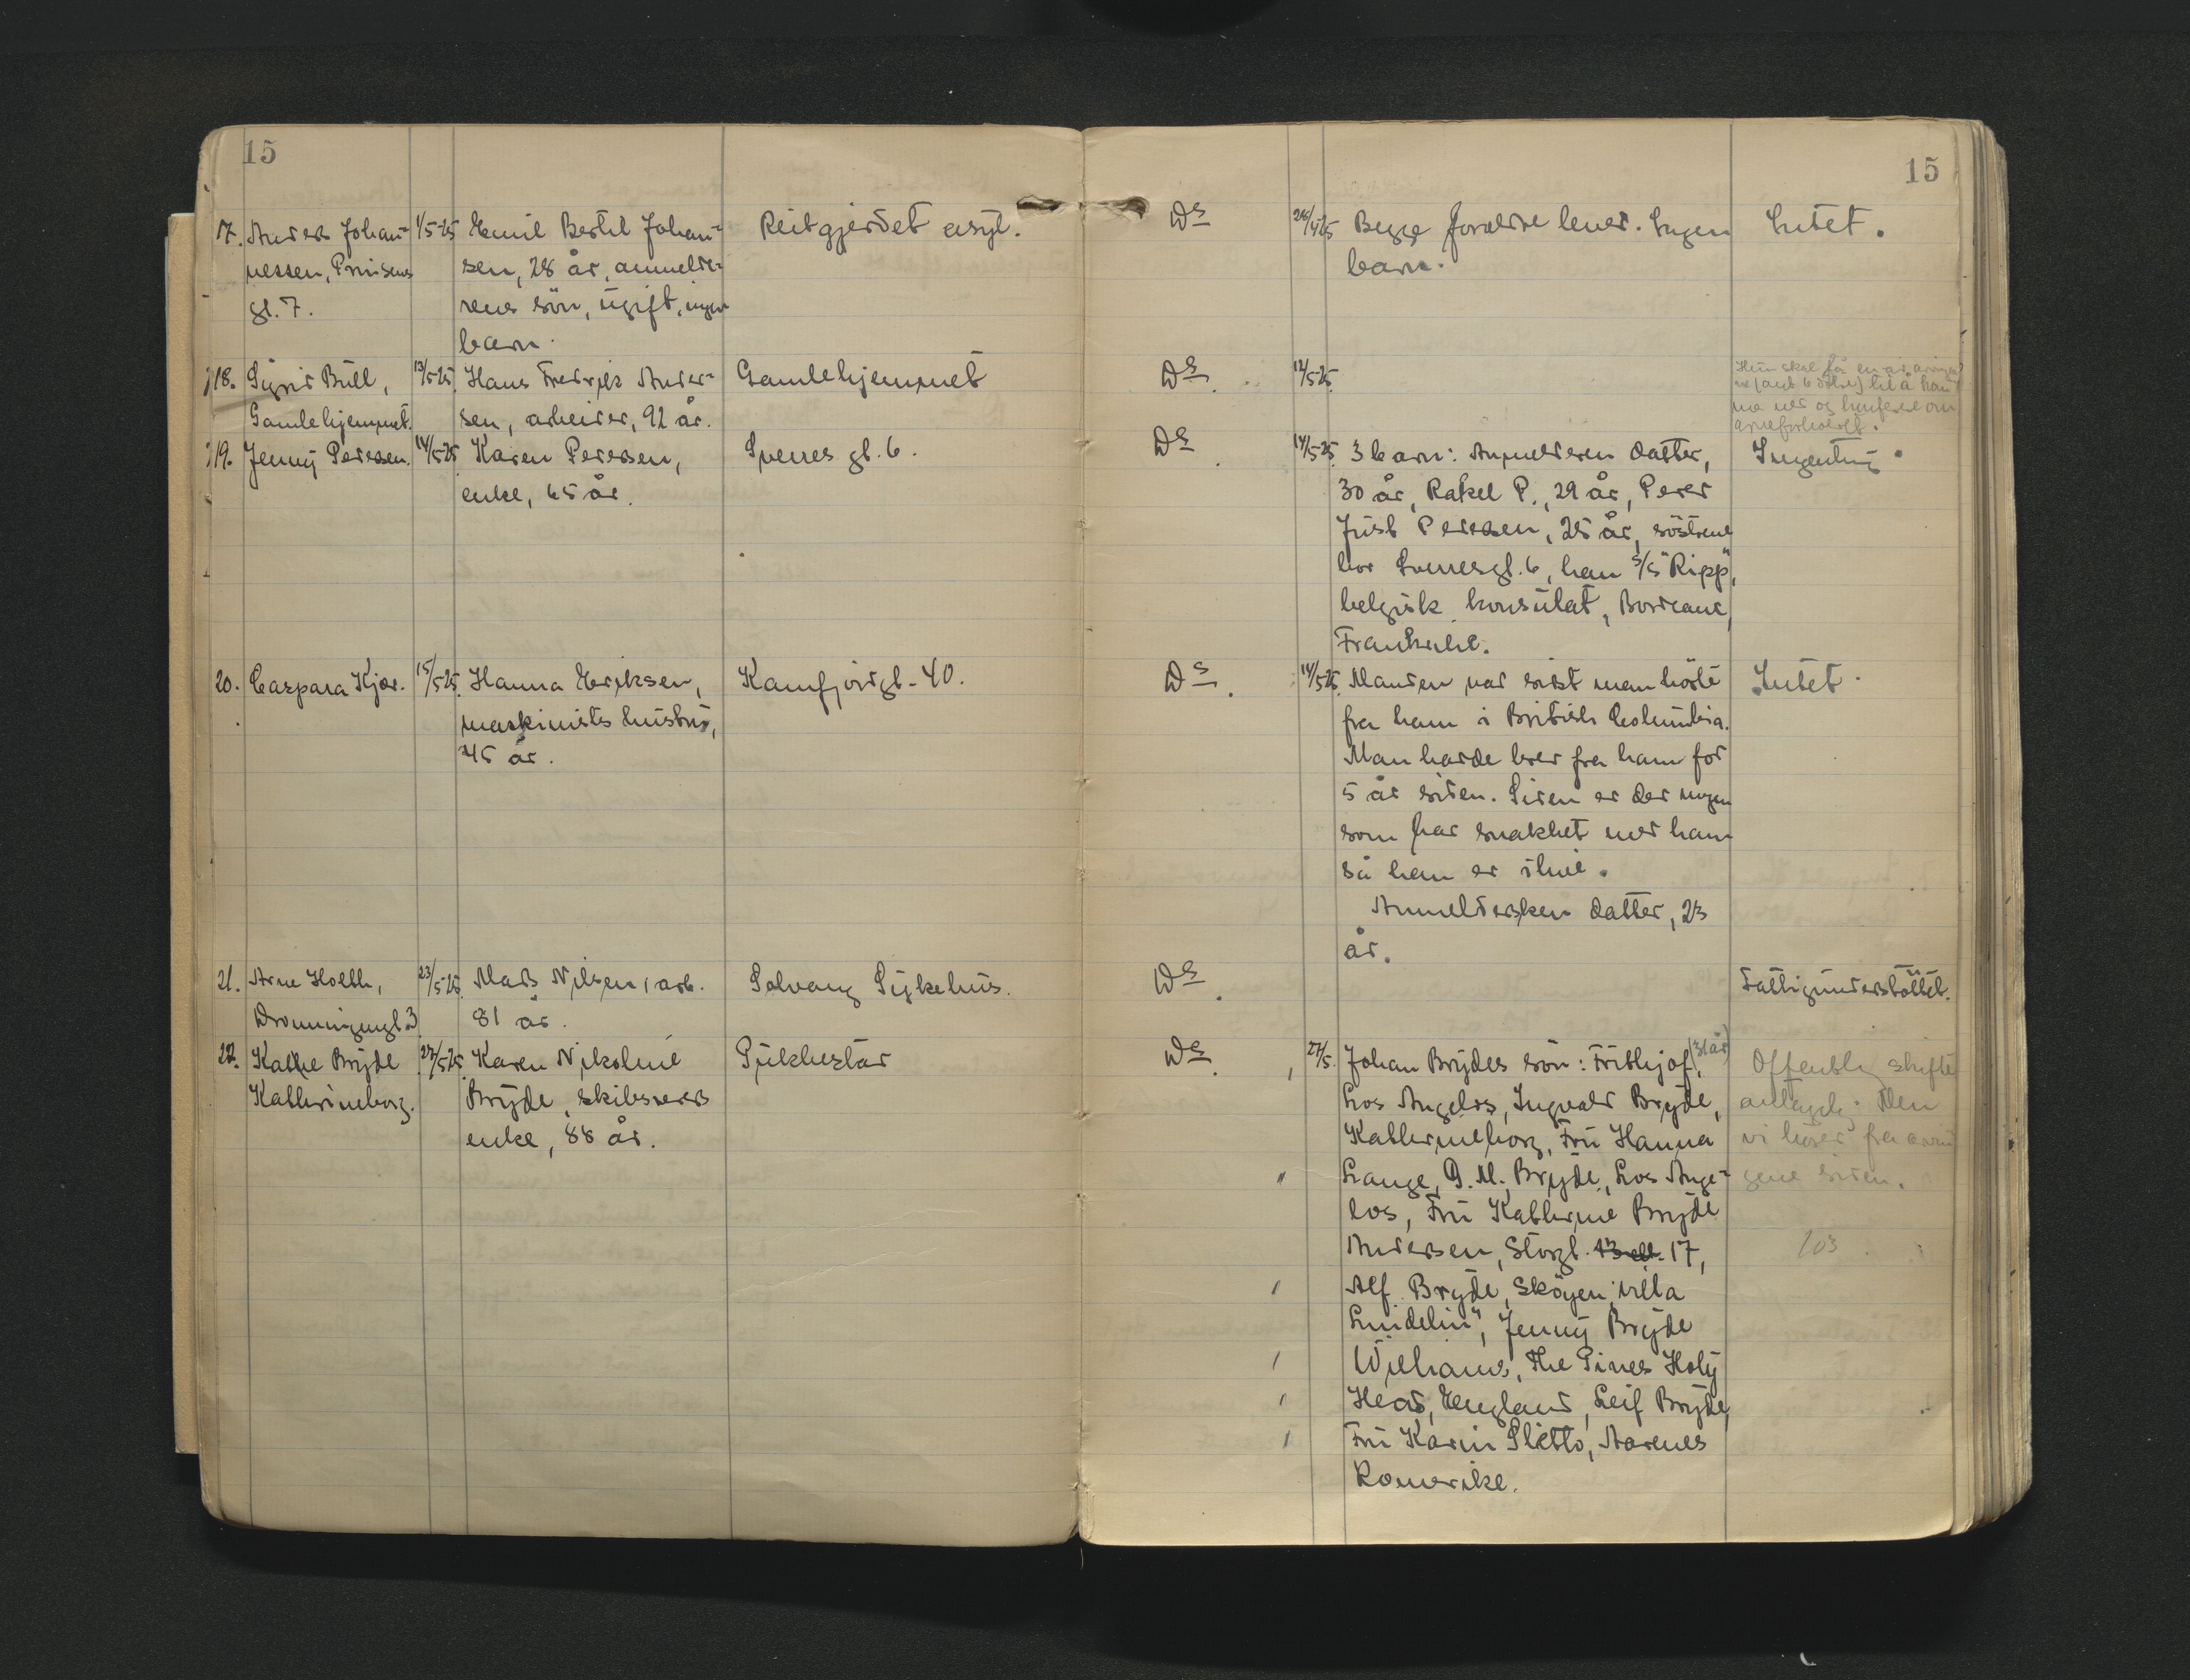 15
15
17. Anders Johan-
nessen, Prinsens
gt. 7.
1/5-25
Emil Bertil Johan-
sen, 28 år, anmelde-
rens sön, ugift, ingen
barn.
Reitgjerdet asyl.
Ds
28/4-25
Begge foreldre lever. Ingen
barn.
Intet.
18. Sigrid Bull,
Gamlehjemmet.
13/5-25.
Hans Fredrik Ander-
sen, arbeider, 92 år.
Gamlehjemmet
Ds.
12/5-25.
Hun skal få en av arvin-
til å kom-
me ned og konferere om
arveforholdet.
19. Jenny Pedersen.
14/5-25
Karen Pedersen,
enke, 65 år.
Sverres gt. 6.
Ds.
14/5-25.
3 barn: Anmelderen datter,
30 år, Rakel P., 29 år, Peder
Just Pedersen, 25 år, söstrene
bor Sverresgt. 6, han S/S "Ripp",
belgisk konsulat, Bordeaux,
Frankrike.
Ingenting.
20. Caspara Kjær.
15/5-25.
Hanna Eriksen,
maskinists hustru,
45 år.
Kamfjordgt. 40.
Ds.
14/5-25.
Manden var sidst man hörte
fra ham i British Columbia.
Man hadde brev fra ham for
5 år siden. Siden er der nogen
som har snakket med ham
så han er ilive.
Anmeldersken datter, 23
år.
Intet.
21. Arne Holth,
Dronningensgt. 3
23/5-25.
Mads Nilsen, arb.
81 år.
Solvang Sykehus.
Ds.
Fattigunderstöttet.
22. Kathe Bryde
Kathrineborg.
27/5-25
Karen Nikoline
Bryde, skibsreders
enke, 88 år.
Pukkestad
Ds.
27/5.
Johan Brydes sön: Frithjof, (31 år)
Los Angelos, Ingvald Bryde,
Kathrineborg, Fru Hanna
Lange, I. M. Bryde, Los Ange-
los, Fru Kathrine Bryde
Andersen, Storgt. 17,
Alf Bryde, Sköyen "villa
Lundelin", Jenny Bryde
Williams, The Pines Holy
Head, England, Leif Bryde,
Fru Karin Sletto, Aarnes
Romerike.
Offentlig skifte
antagelig. Men
vi hörer fra arvin
gene siden.
103